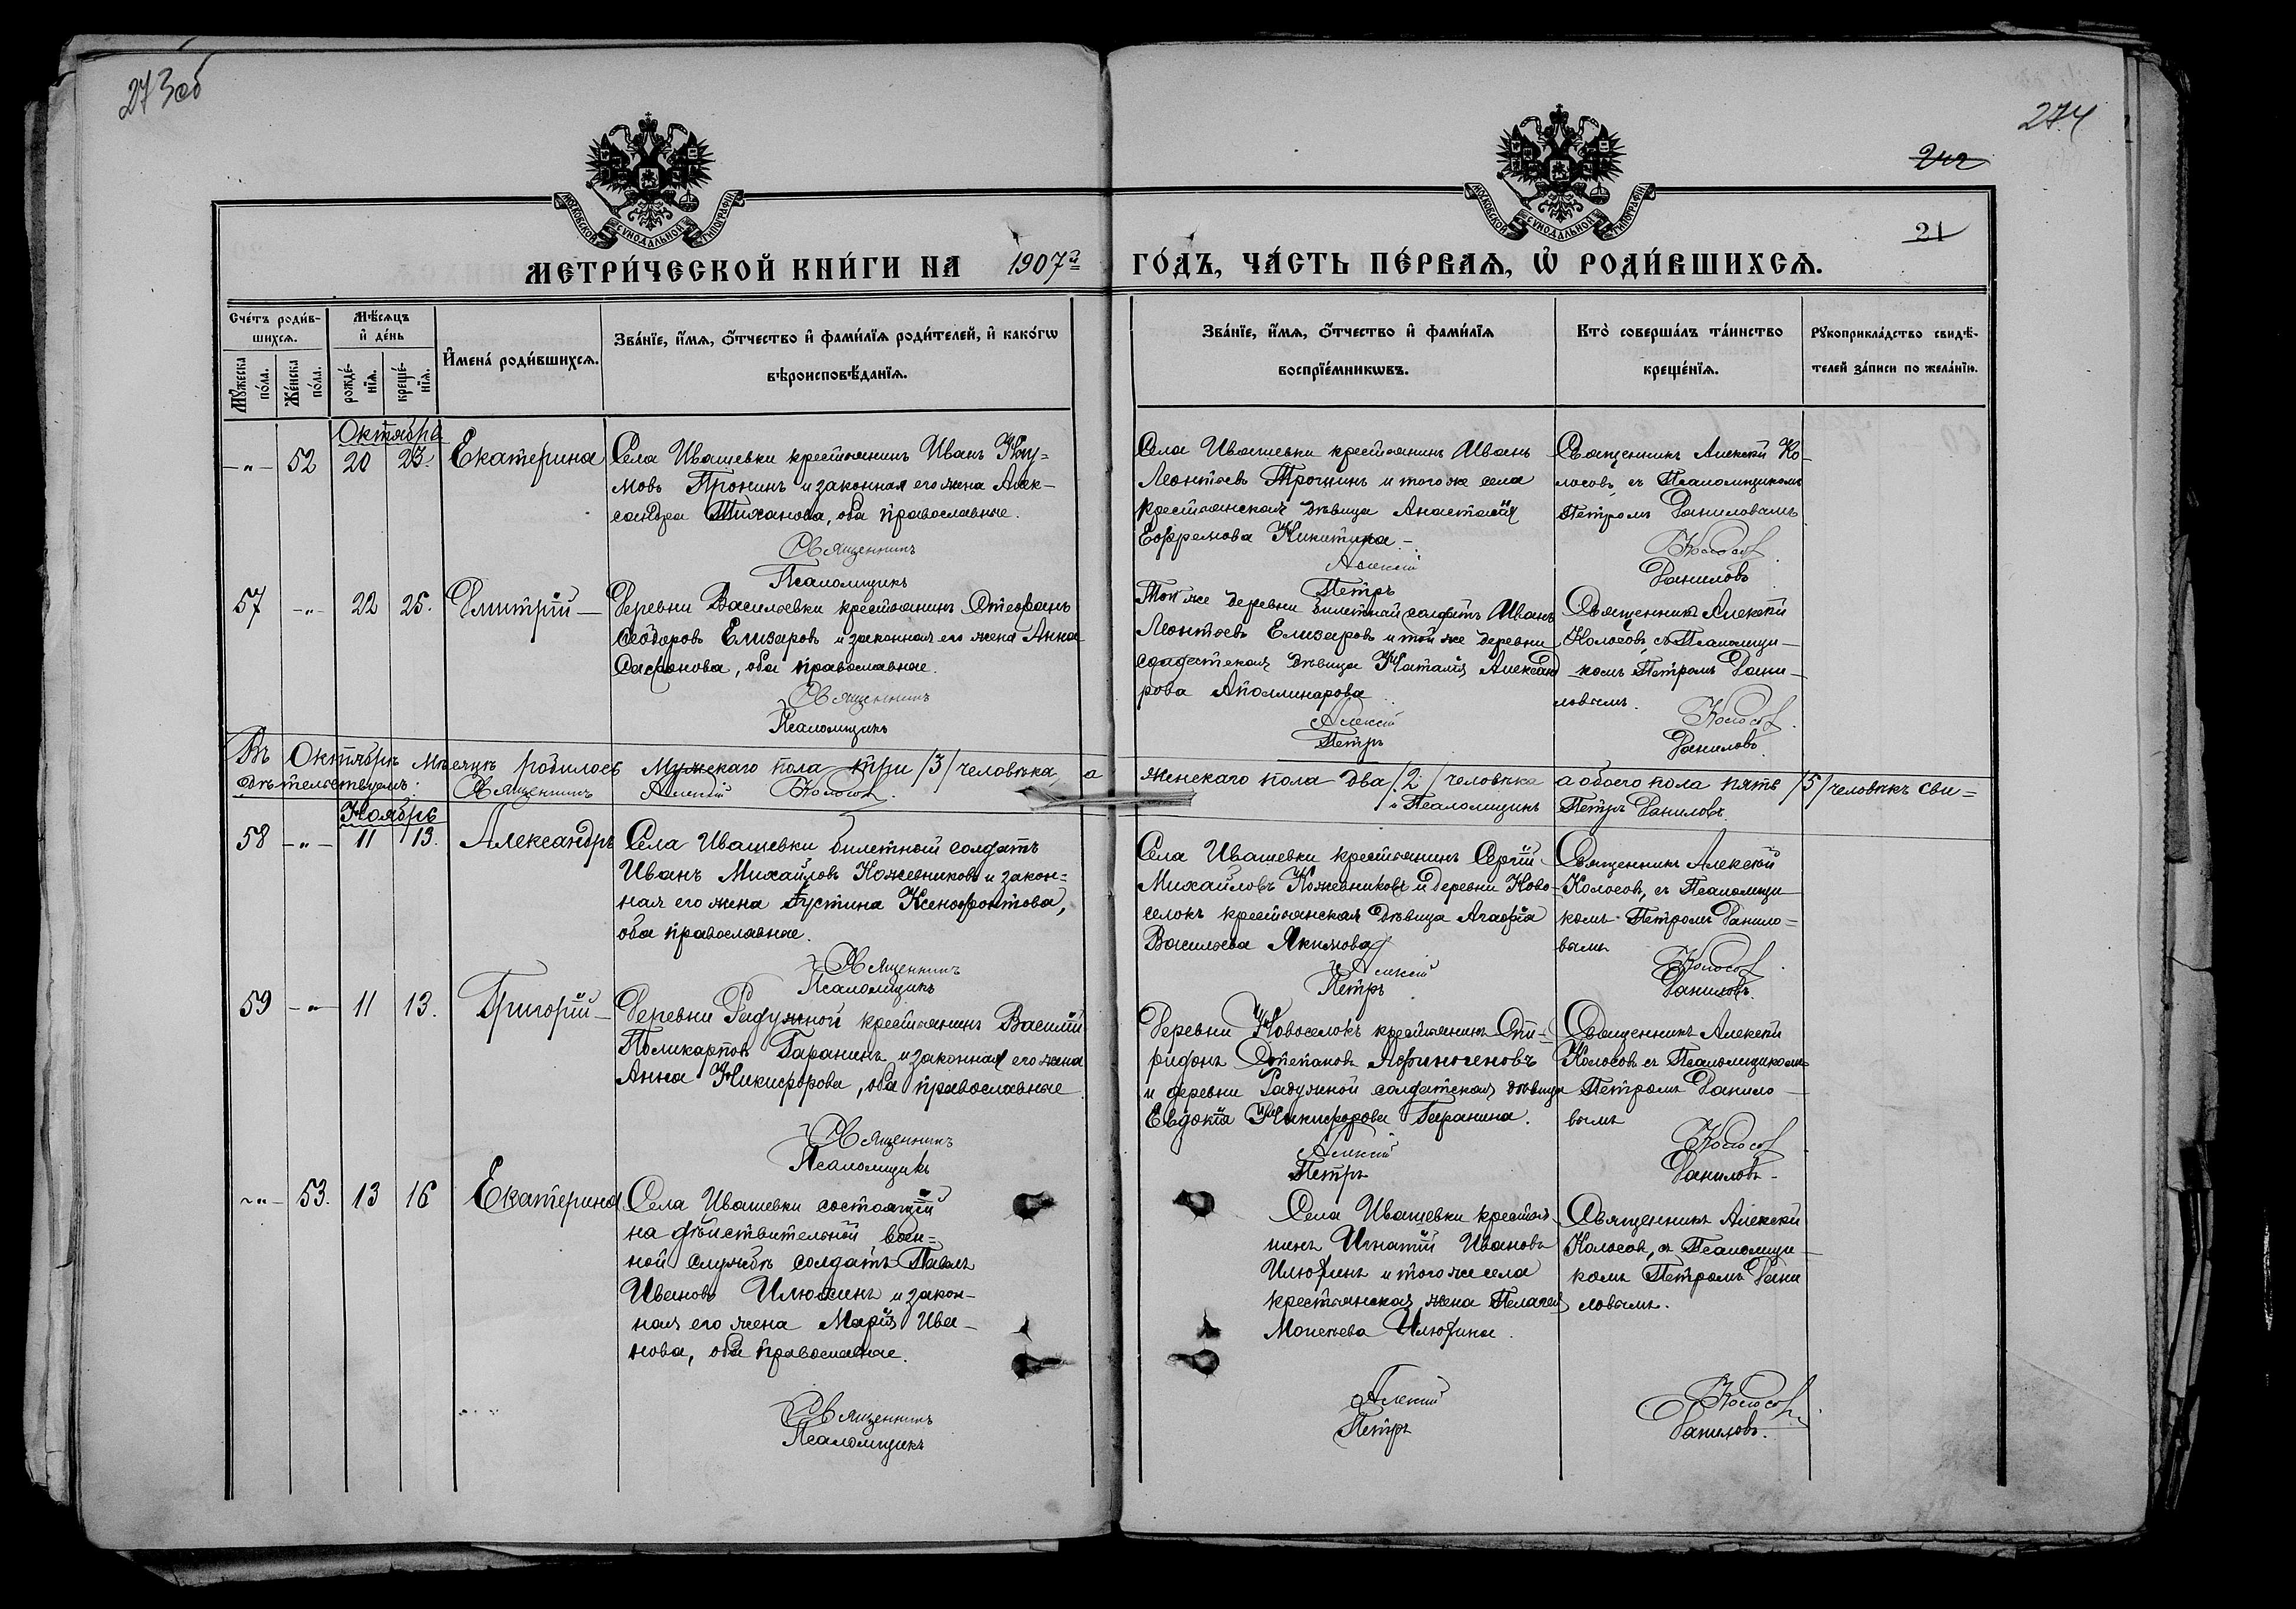 273об
274
212
21
МОСКОВСКОЙ СѴНОДАЛЬНОЙ ТИПОГРАФІИ
МОСКОВСКОЙ СѴНОДАЛЬНОЙ ТИПОГРАФІИ
МЕТРИ́ЧЕСКОЙ КНИ́ГИ НА 1907й ГО́ДЪ, ЧА́СТЬ ПЕ́РВАѦ, Ѡ҆ РОДИ́ВШИХСѦ.
Сче́тъ роди́в-
шихсѧ.
Мꙋ́жеска по́ла.
Же́нска по́ла.
Мѣ́сѧцъ и҆ де́нь
рожде́-
нїѧ.
креще́-
нїѧ.
И҆мена̀ роди́вшихсѧ.
Зва́нїе, и҆́мѧ, ѻ҆́тчество и҆ фами́лїѧ роди́телей, и҆ како́гѡ
вѣроисповѣ́данїѧ.
Зва́нїе, и҆́мѧ, ѻ҆́тчество и҆ фами́лїѧ
воспрїе́мникѡвъ.
Кто̀ соверша́лъ та́инство
креще́нїѧ.
Рꙋкоприкла́дство свидѣ́-
телей за́писи по жела́нїю.
Октябрь
-"- 52 20 23. Екатерина
Села Ивашевки крестьянинъ Иванъ Нау=
мовъ Пронинъ и законная его жена Алек-
сандра Тиханова, оба православные.
Села Ивашевки крестьянинъ Иванъ
Леонтьевъ Трошинъ и того же села
крестьянская дѣвица Анастасія
Ефремова Никитина.-
Священникъ Алексѣй Ко-
лосовъ, съ Псаломщикомъ
Петромъ Даниловымъ
Священникъ Алексій Колосов
Псаломщикъ Петръ Даниловъ
57 -"- 22 25. Димитрій-
Деревни Васильевки крестьянинъ Стефанъ
Ѳеодоровъ Елизаровъ и законная его жена Анна
Сафонова, оба православные.
Той же деревни билетный солдатъ Иванъ
Леонтьевъ Елизаровъ и той же деревни
солдатская дѣвица Наталія Александ
рова Аполлинарова.
Священникъ Алексѣй
Колосовъ, съ Псаломщи-
комъ Петромъ Дани-
ловымъ.
Священникъ Алексій Колосов.
Псаломщикъ Петръ Даниловъ.
Въ Октябрѣ мѣсяцѣ родилось мужскаго пола три /3/ человѣка, а женскаго пола два /2/ человѣка а обоего пола пять /5/ человѣкъ сви=
дѣтельствуемъ: Священникъ Алексій Колосов. и Псаломщикъ Петръ Даниловъ.
Ноябрь
58 -"- 11 13. Александръ
Села Ивашевки билетный солдатъ
Иванъ Михайловъ Кожевниковъ и закон=
ная его жена Іустина Ксенофонтова,
оба православные.
Села Ивашевки крестьянинъ Сергій
Михайловъ Кожевниковъ и деревни Ново-
селокъ крестьянская дѣвица Агафія
Васильева Якимова
Священникъ Алексѣй
Колосов, съ Псаломщи-
комъ Петромъ Данило=
вымъ
Священникъ Алексій Колосов.
Псаломщикъ Петръ Даниловъ.
59 -"- 11 13. Григорій-
Деревни Радужной крестьянинъ Василій
Поликарповъ Гаранинъ и законная его жена
Анна Никифорова, оба православные.
Деревни Новоселокъ крестьянинъ Спи-
ридонъ Степановъ Афиногеновъ
и деревни Радужной солдатская дѣвица
Евдокія Никифорова Гаранина.
Священникъ Алексѣй
Колосовъ съ Псаломщикомъ
Петромъ Данило-
вымъ
Священникъ Алексій Колосов
Псаломщикъ Петръ Даниловъ.
-"- 53. 13 16 Екатерина
Села Ивашевки состоящій
на дѣйствительной воен=
ной службѣ солдатъ Павелъ
Ивановъ Илюхинъ и закон-
ная его жена Марія Ива-
нова, оба православные.
Села Ивашевки крестья
нинъ Игнатій Ивановъ
Илюхинъ и того же села
крестьянская жена Пелагея
Моисеева Илюхина.
Священникъ Алексѣй
Колосов, съ Псаломщи-
комъ Петромъ Дани
ловымъ.
Священникъ Алексій Колосов.
Псаломщикъ Петръ Даниловъ.